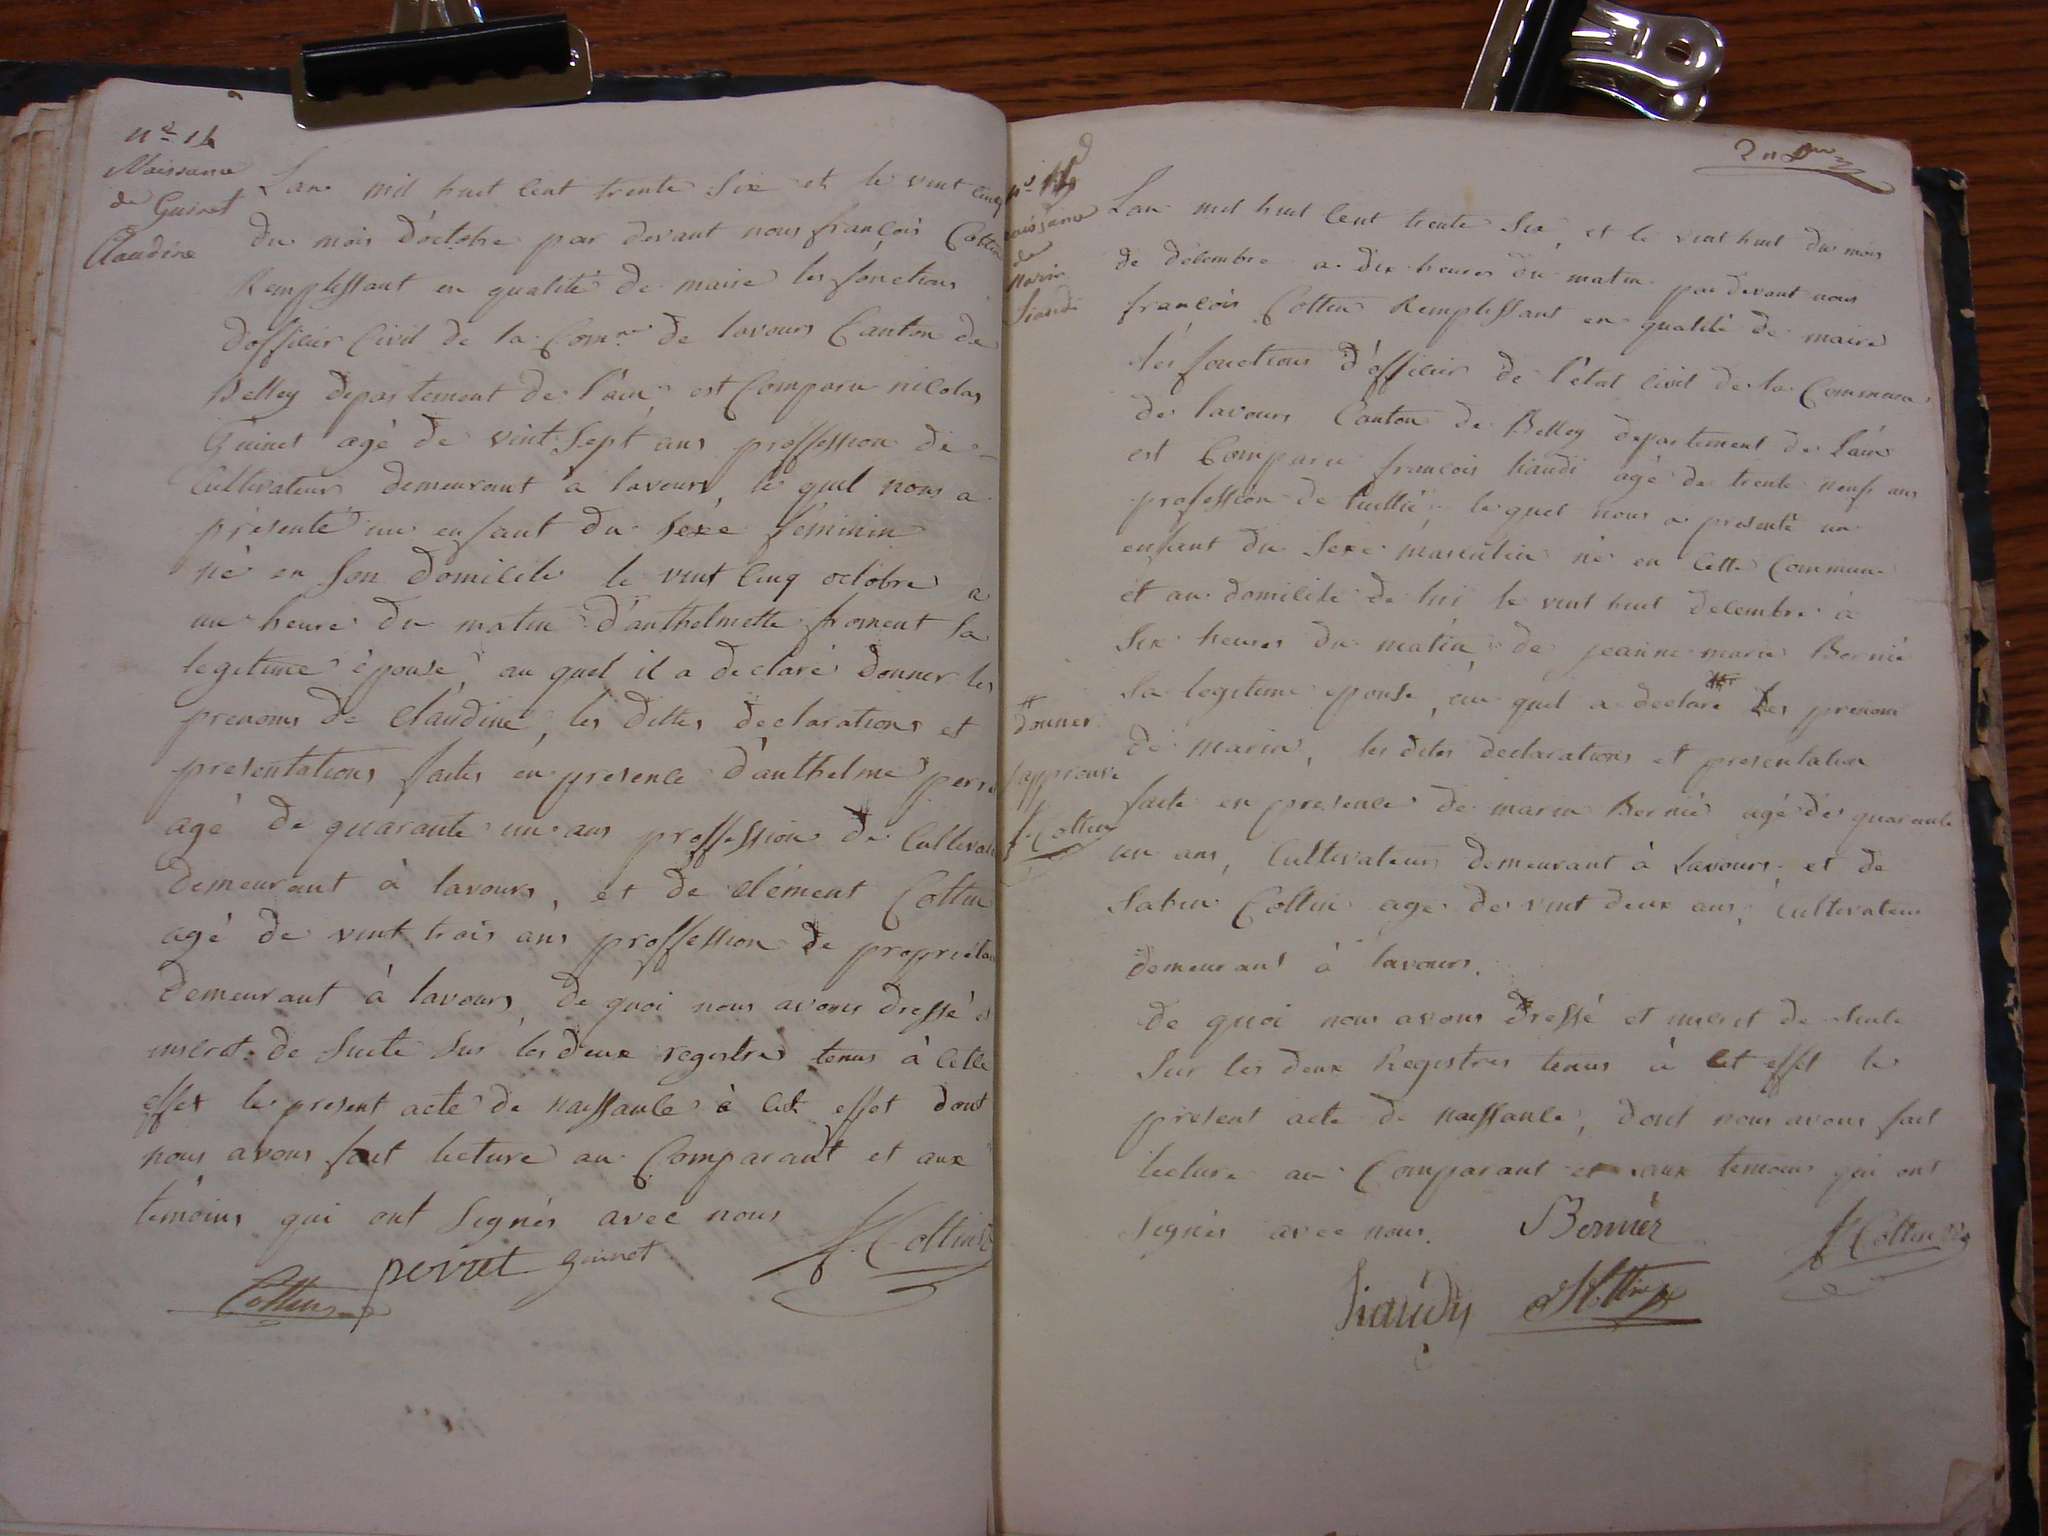 Naissance
de Guinet
Claudine
Lan mil huit cent trente six et le vint cinq
du mois d'octobre par devant nous françois Cottin
Remplissant en qualité de maire les fonctions
d'officier Civil de la Comne de lavours Canton de
Belley departement de l'ain est Comparu nicolas
Guinet agé de vint sept ans proffession de
Cultivateur demeurant à lavours, le quel nous a
présenté un enfant du sexe féminin
né en son domicile le vint cinq octobre a
une heure du matin d'anthelmette froment sa
legitime épouse, au quel il a declaré donner les
prenoms de claudine, les dittes declarations et
presentations faites en presence d'anthelme perret
agé de quarante un ans proffession de Cultivat
demeurant à lavours, et de clément Cottin
agé de vint trois ans proffession de proprietai
demeurant à lavours, de quoi nous avons dressé et
inscrit de suite sur les deux registres tenus à cette
effet le present acte de naissance à cet effet dont
nous avons fait lecture au Comparant et aux
témoins qui ont signés avec nous
Cottin perret guinet f. Cottin
naissance
de
Marin
Liaudi
Lan mil huit cent trente six, et le vint huit du mois
de décembre a dix heures du matin par devant nous
françois Cottin Remplissant en qualité de maire
les fonctions d'officier de l'état civil de la Commune
de lavours Canton de Belley departement de l'ain
est Comparu françois liaudi agé de trente neuf ans
profession de, le quel nous a presenté un
enfant du sexe masculin né en cette commune
et au domicile de lui le vint huit decembre à
six heures du matin, de jeanne marie Bernié
sa legitime epouse, au quel a declaré les prenom
donner
de marin, les dites declarations et presentation
japprouve
faite en presence de marin Bernié agé de quarante
f. Cottin
un ans, Cultivateur demeurant à Lavours, et de
Sabin Cottin age de vint deux ans, Cultivateur
demeurant à lavours.
de quoi nous avons dressé et inscrit de suite
sur les deux Registres tenus à cet effet le
present acte de naissance, dont nous avons fait
lecture au Comparant et aux temoins qui ont
signés avec nous. Bernier f. Cottin
liaudy Cottin